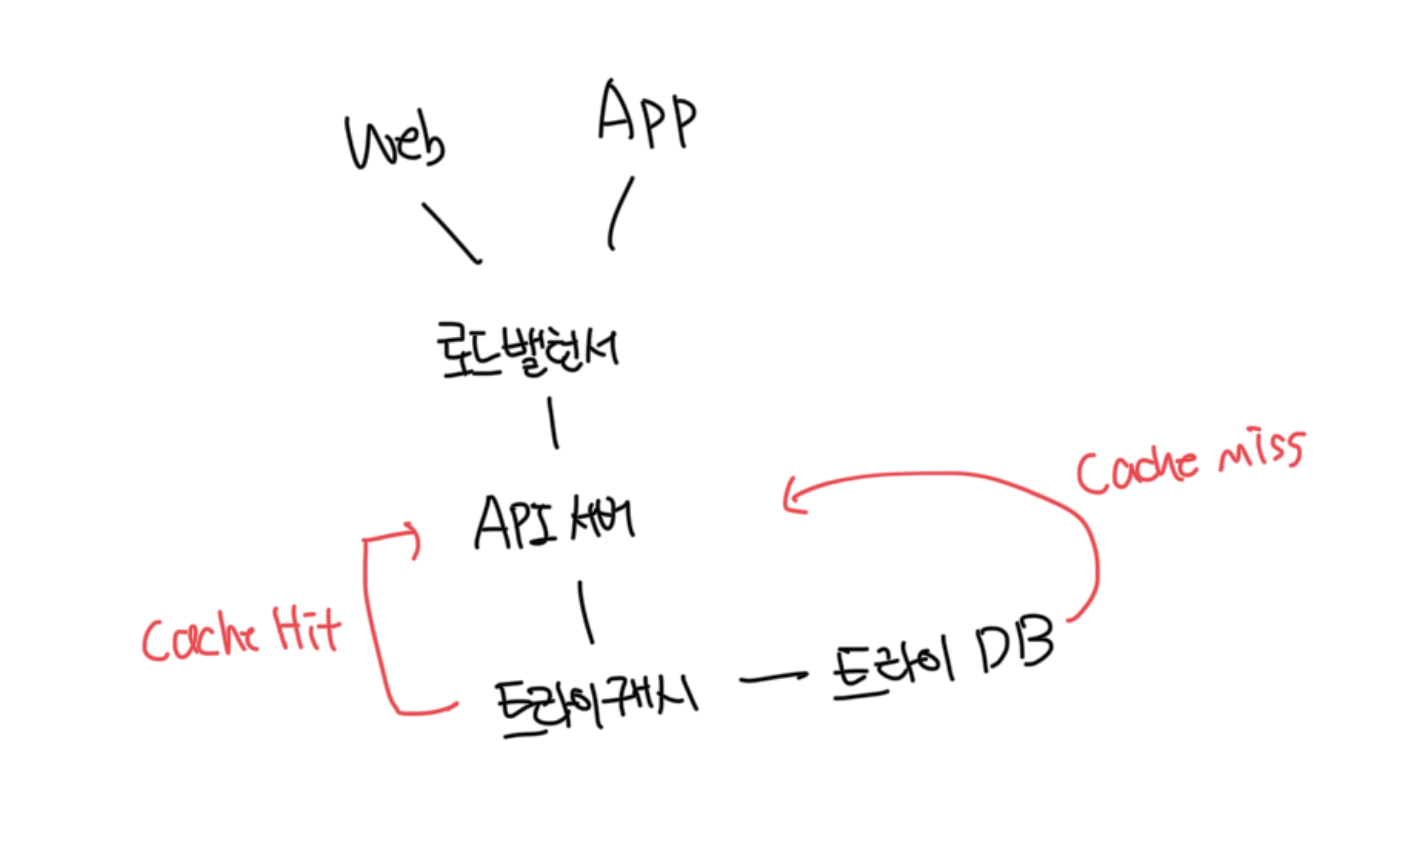 Web
App
로드밸런서
API 서버
Cache Hit
Cache miss
트라이캐시
트라이 DB